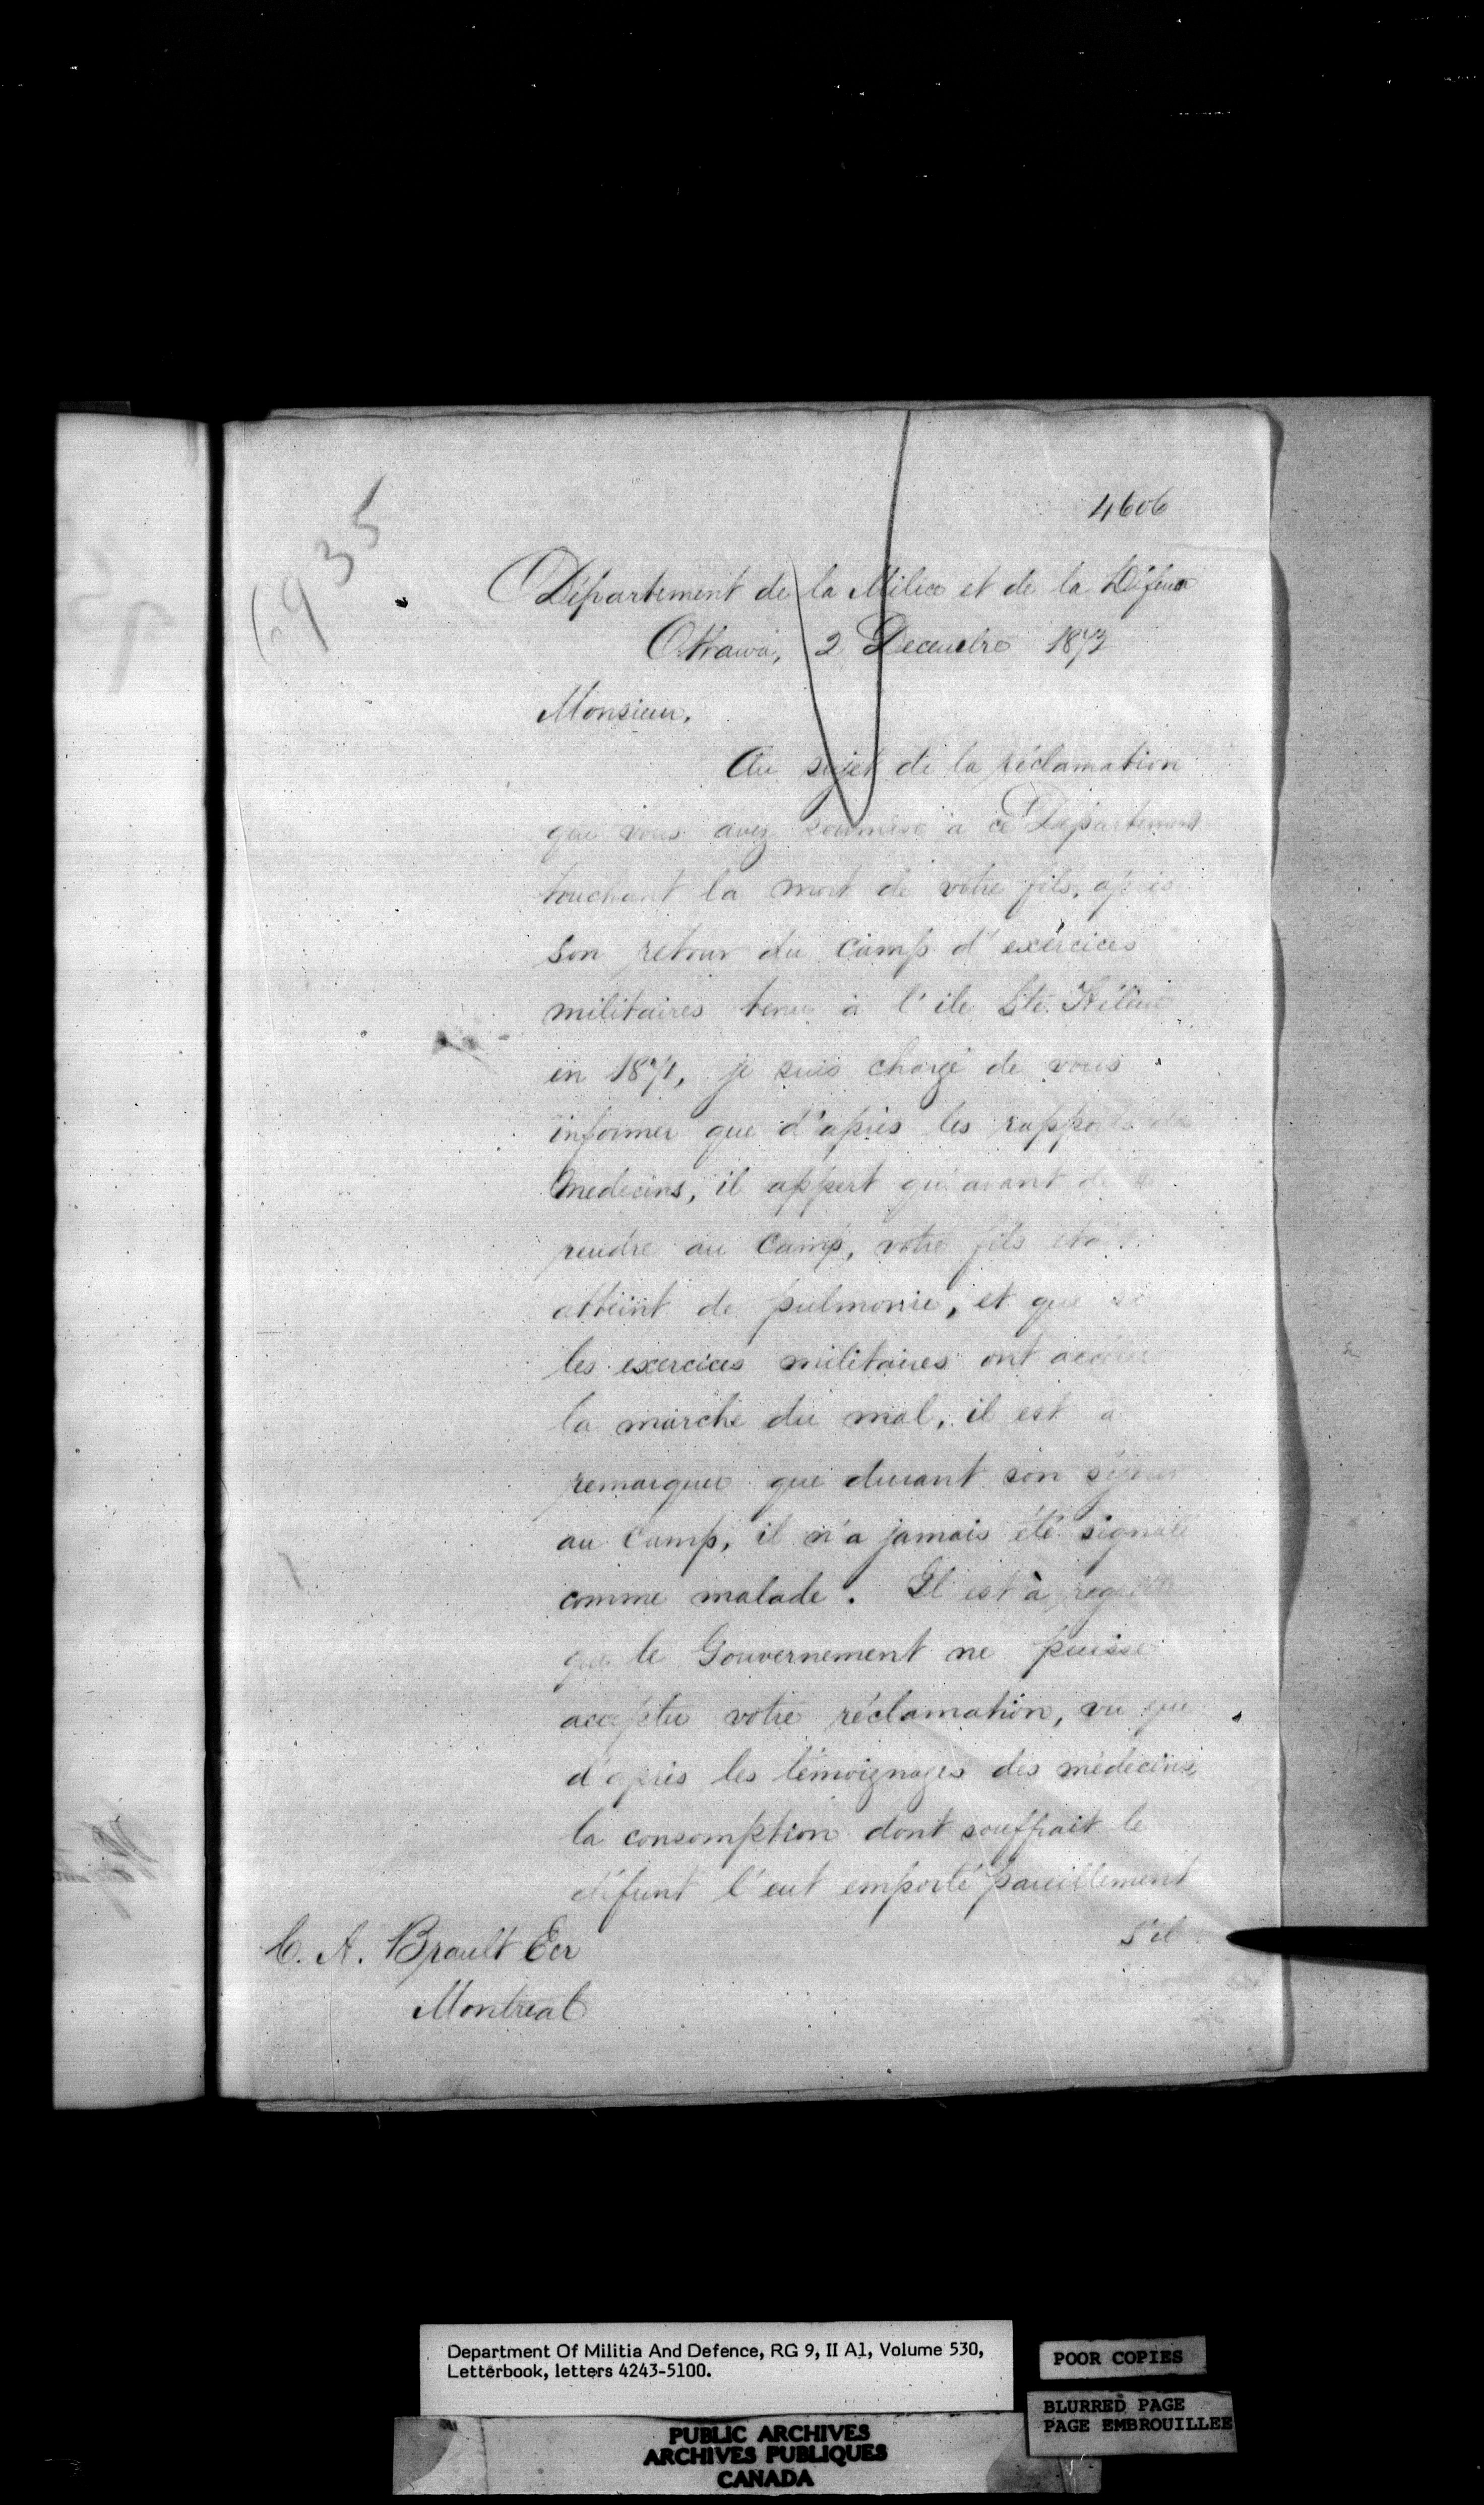 4606
6935
Département de la Milice et de la Défense
Ottawa, 2 Decembre 1873
Monsieur,
Au sujet de la réclamation
que vous avez soumise à ce Département
touchant la mort de votre fils, après
son retour du Camp d'exercices
militaires tenu à l'ile Ste. Hélène
en 1871, je suis chargé de vous
informer que d'après les rapports des
Medecins, il appert qu'avant de se
rendre au Camp, votre fils était
atteint de pulmonie, et que si
les exercices militaires ont
la marche du mal, il est à
remarquer que durant son séjour
au Camp, il n'a jamais été signalé
comme malade. Il est à regretter
que le Gouvernement ne puisse
accepter votre réclamation, vu que
d'après les témoignages des médecins,
la consomption dont souffrait le
défunt l'eut emporté pareillement
s'il
C. A. Brault Ecr
Montreal
Department Of Militia And Defence, RG 9, II A1, Volume 530,
Letterbook, letters 4243-5100.
POOR COPIES
BLURRED PAGE
PAGE EMBROUILLEE
PUBLIC ARCHIVES
ARCHIVES PUBLIQUES
CANADA